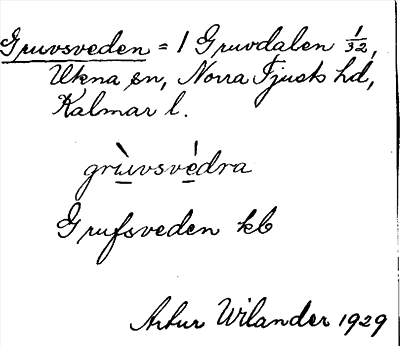 Gruvsveden = 1 Gruvdalen 1/32,
Ukna sn, Norra Tjusts hd,
Kalmar l.
grùuvsvédra
Grufsveden kb
Artur Wilander 1929